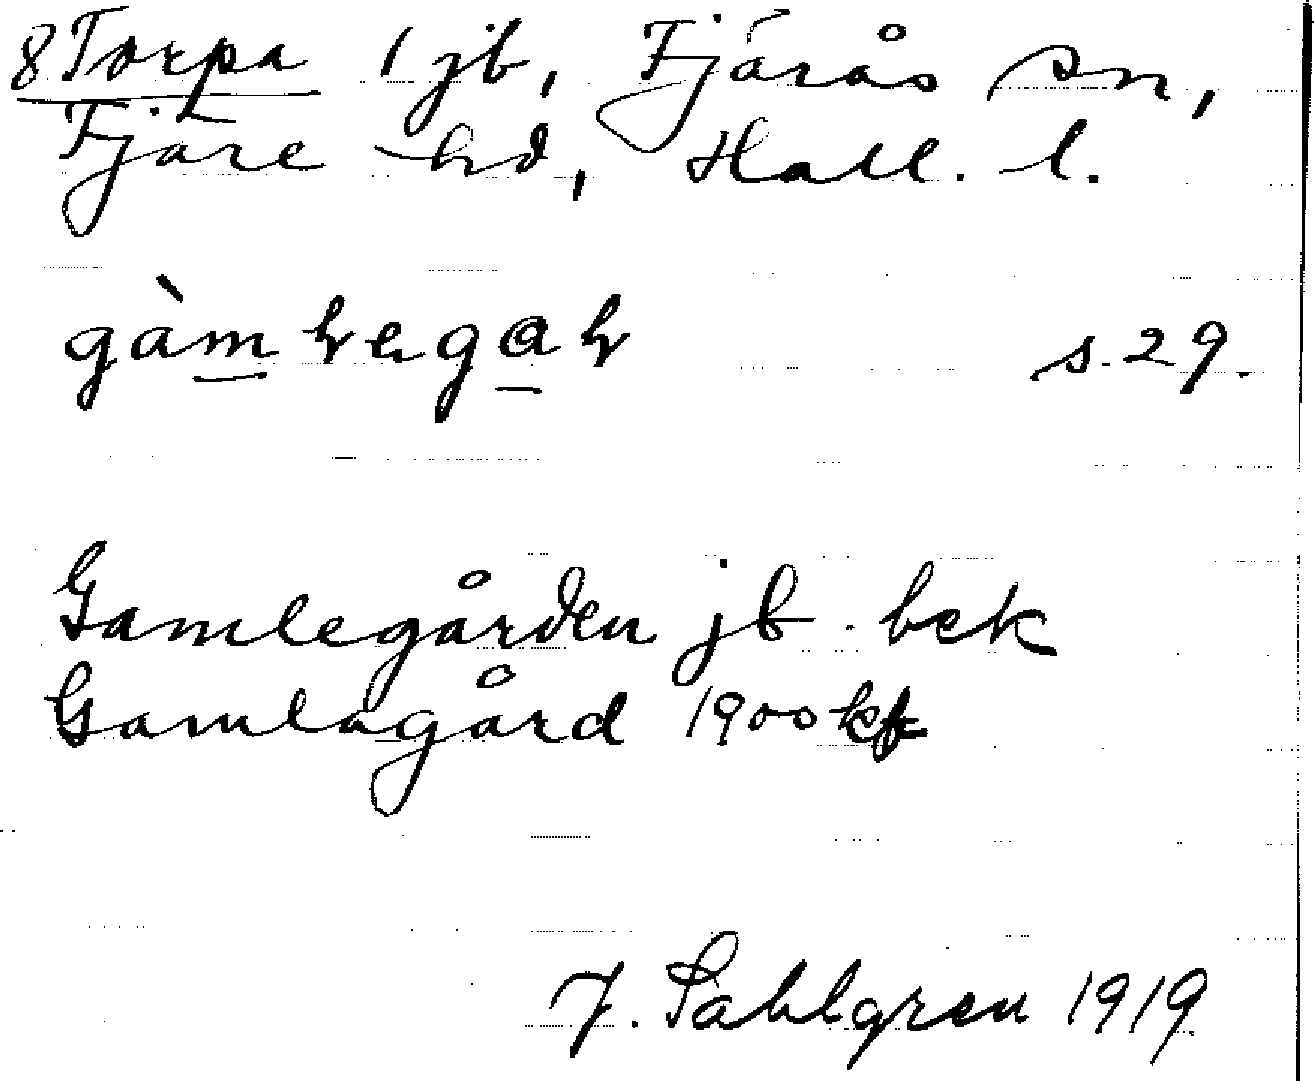 8 Torpa 1 jb, Fjärås sn,
Fjäre hd, Hall. l.
s. 29.
Gamlegården jb. bek
Gamlagård 1900 kf
J. Sahlgren 1919